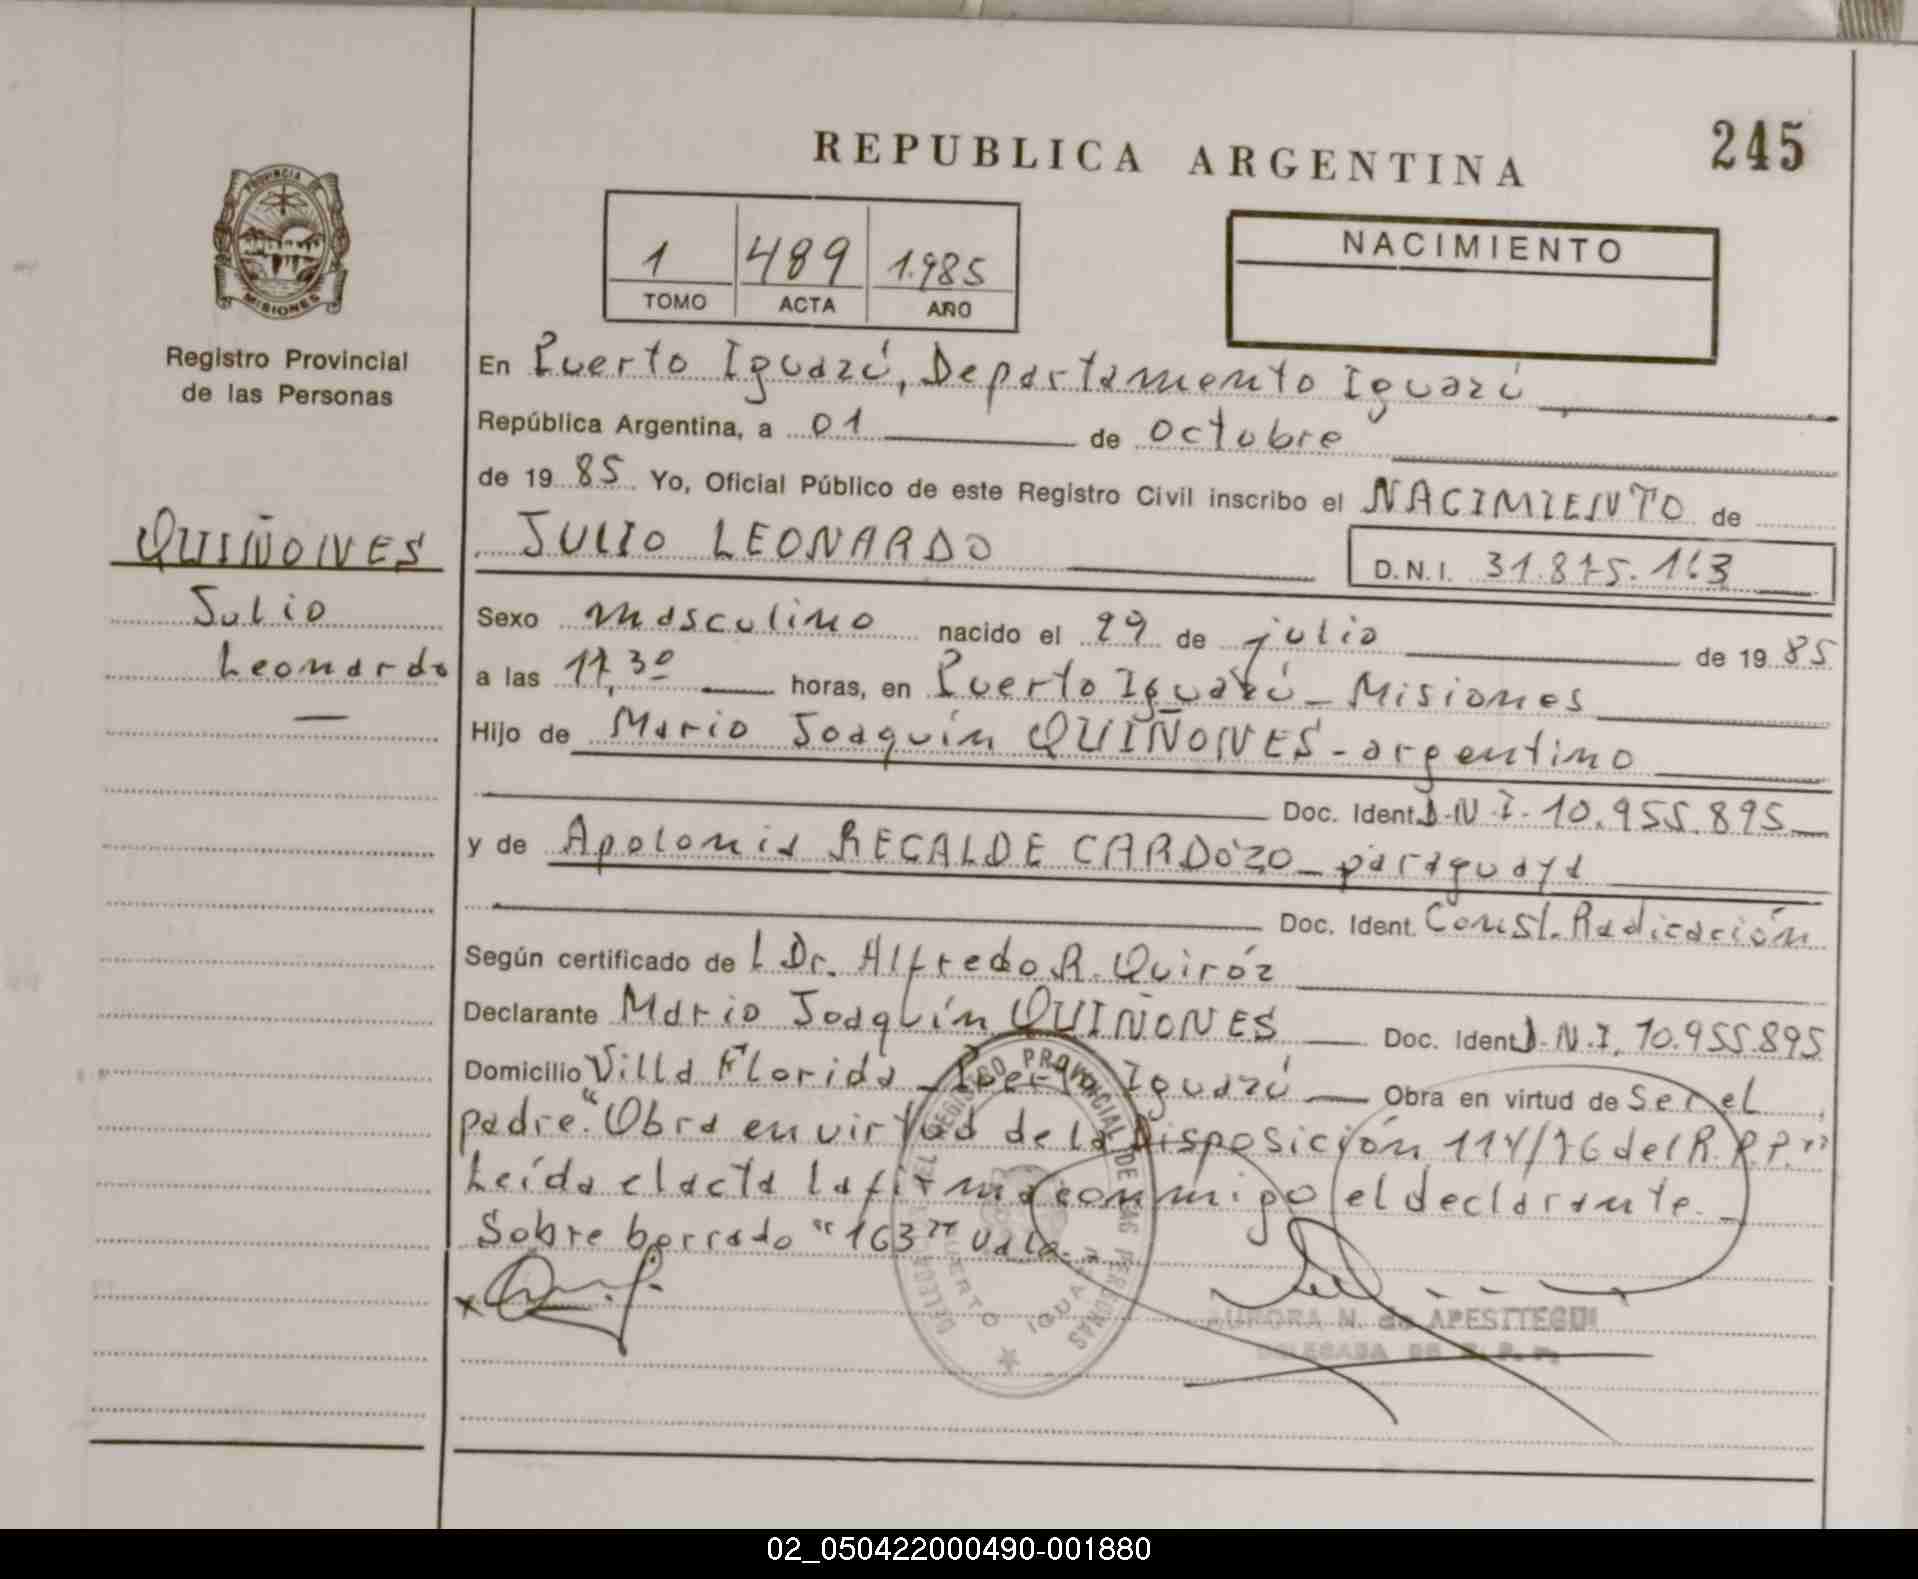 245
REPUBLICA ARGENTINA
PROVINCIA DE
MISIONES
Registro Provincial
de las Personas
1 489 1.985
TOMO ACTA AÑO
NACIMIENTO
QUIÑONES
Julio
Leonardo
En Puerto Iguazú, Departamento Iguazú
República Argentina, a 01 de octubre
de 19 85 Yo, Oficial Público de este Registro Civil inscribo el NACIMIENTO de
JULIO LEONARDO D.N.I. 31.875.163
Sexo masculino nacido el 29 de julio de 19 85
a las 17,30 horas, en Puerto Iguazú - Misiones
Hijo de Mario Joaquín QUIÑONES - argentino
Doc. Ident. D.N.I. 10.955.895
y de Apolonia RECALDE CARDOZO - paraguaya
Doc. Ident. Const. Radicación
Según certificado de l Dr. Alfredo R. Quiróz
Declarante Mario Joaquín QUIÑONES Doc. Ident. D.N.I. 10.955.895
Domicilio Villa Florida - Puerto Iguazú Obra en virtud de Ser el
padre. "Obra en virtud de la Disposición 114/76 del R.P.P."
Leída el acta la firma conmigo el declarante. -
Sobre borrado "163" vale.
x
REGISTRO PROVINCIAL DE LAS PERSONAS
PUERTO IGUAZU
AURORA N. de APESTTEGUI
DELEGADA DE R. P. P.
02_050422000490-001880